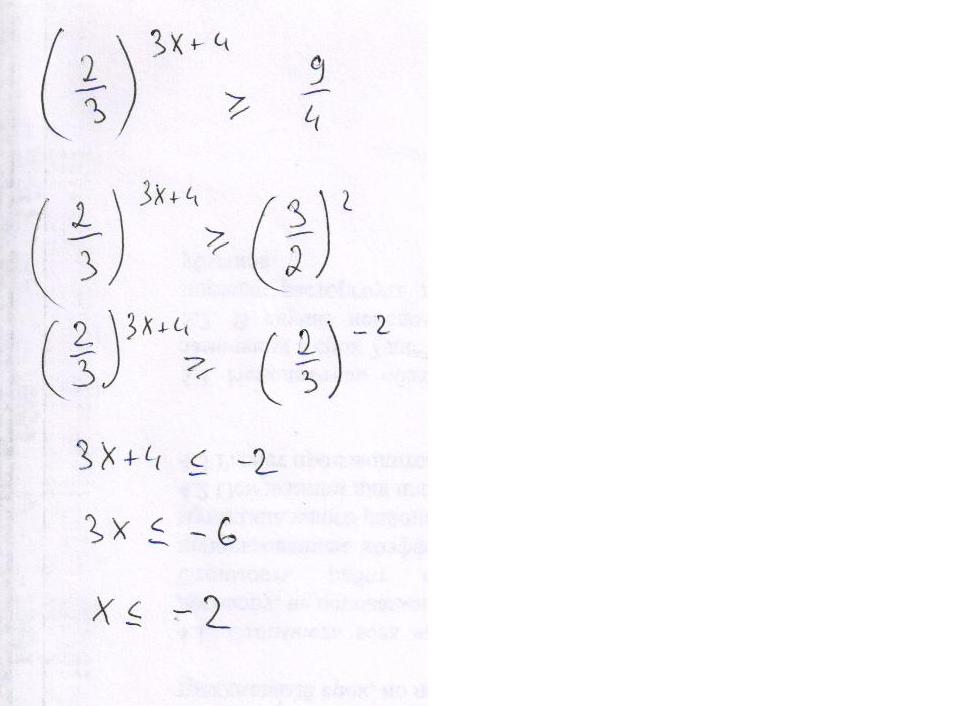 (2/3)^(3x+4) ≥ 9/4
(2/3)^(3x+4) ≥ (3/2)^2
(2/3)^(3x+4) ≥ (2/3)^(-2)
3x+4 ≤ -2
3x ≤ -6
x ≤ -2